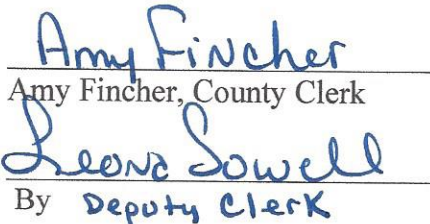 Amy Fincher
Amy Fincher, County Clerk
Leona Sowell
By Deputy Clerk